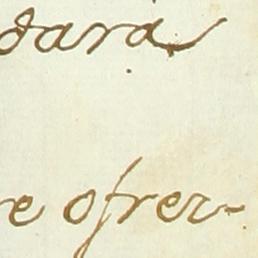 dara
re ofrer-